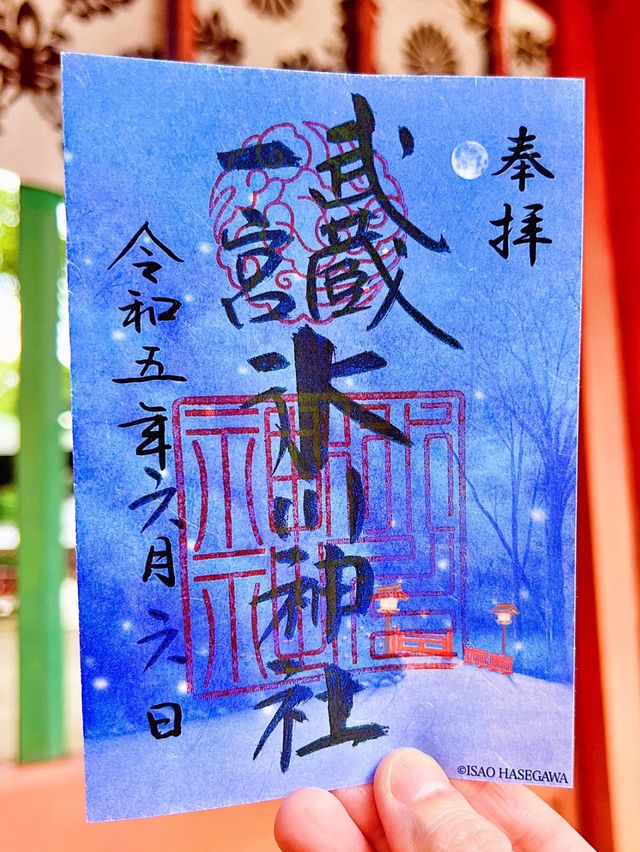 奉拝
武蔵
一宮
氷川神社
令和五年六月六日
©ISAO HASEGAWA